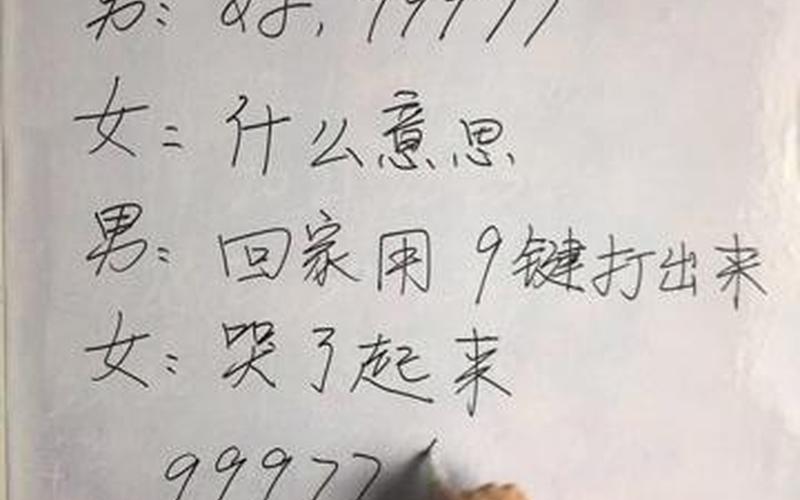 男: 好, 99977
女: 什么意思
男: 回家用 9键打出来
女: 哭了起来
99977